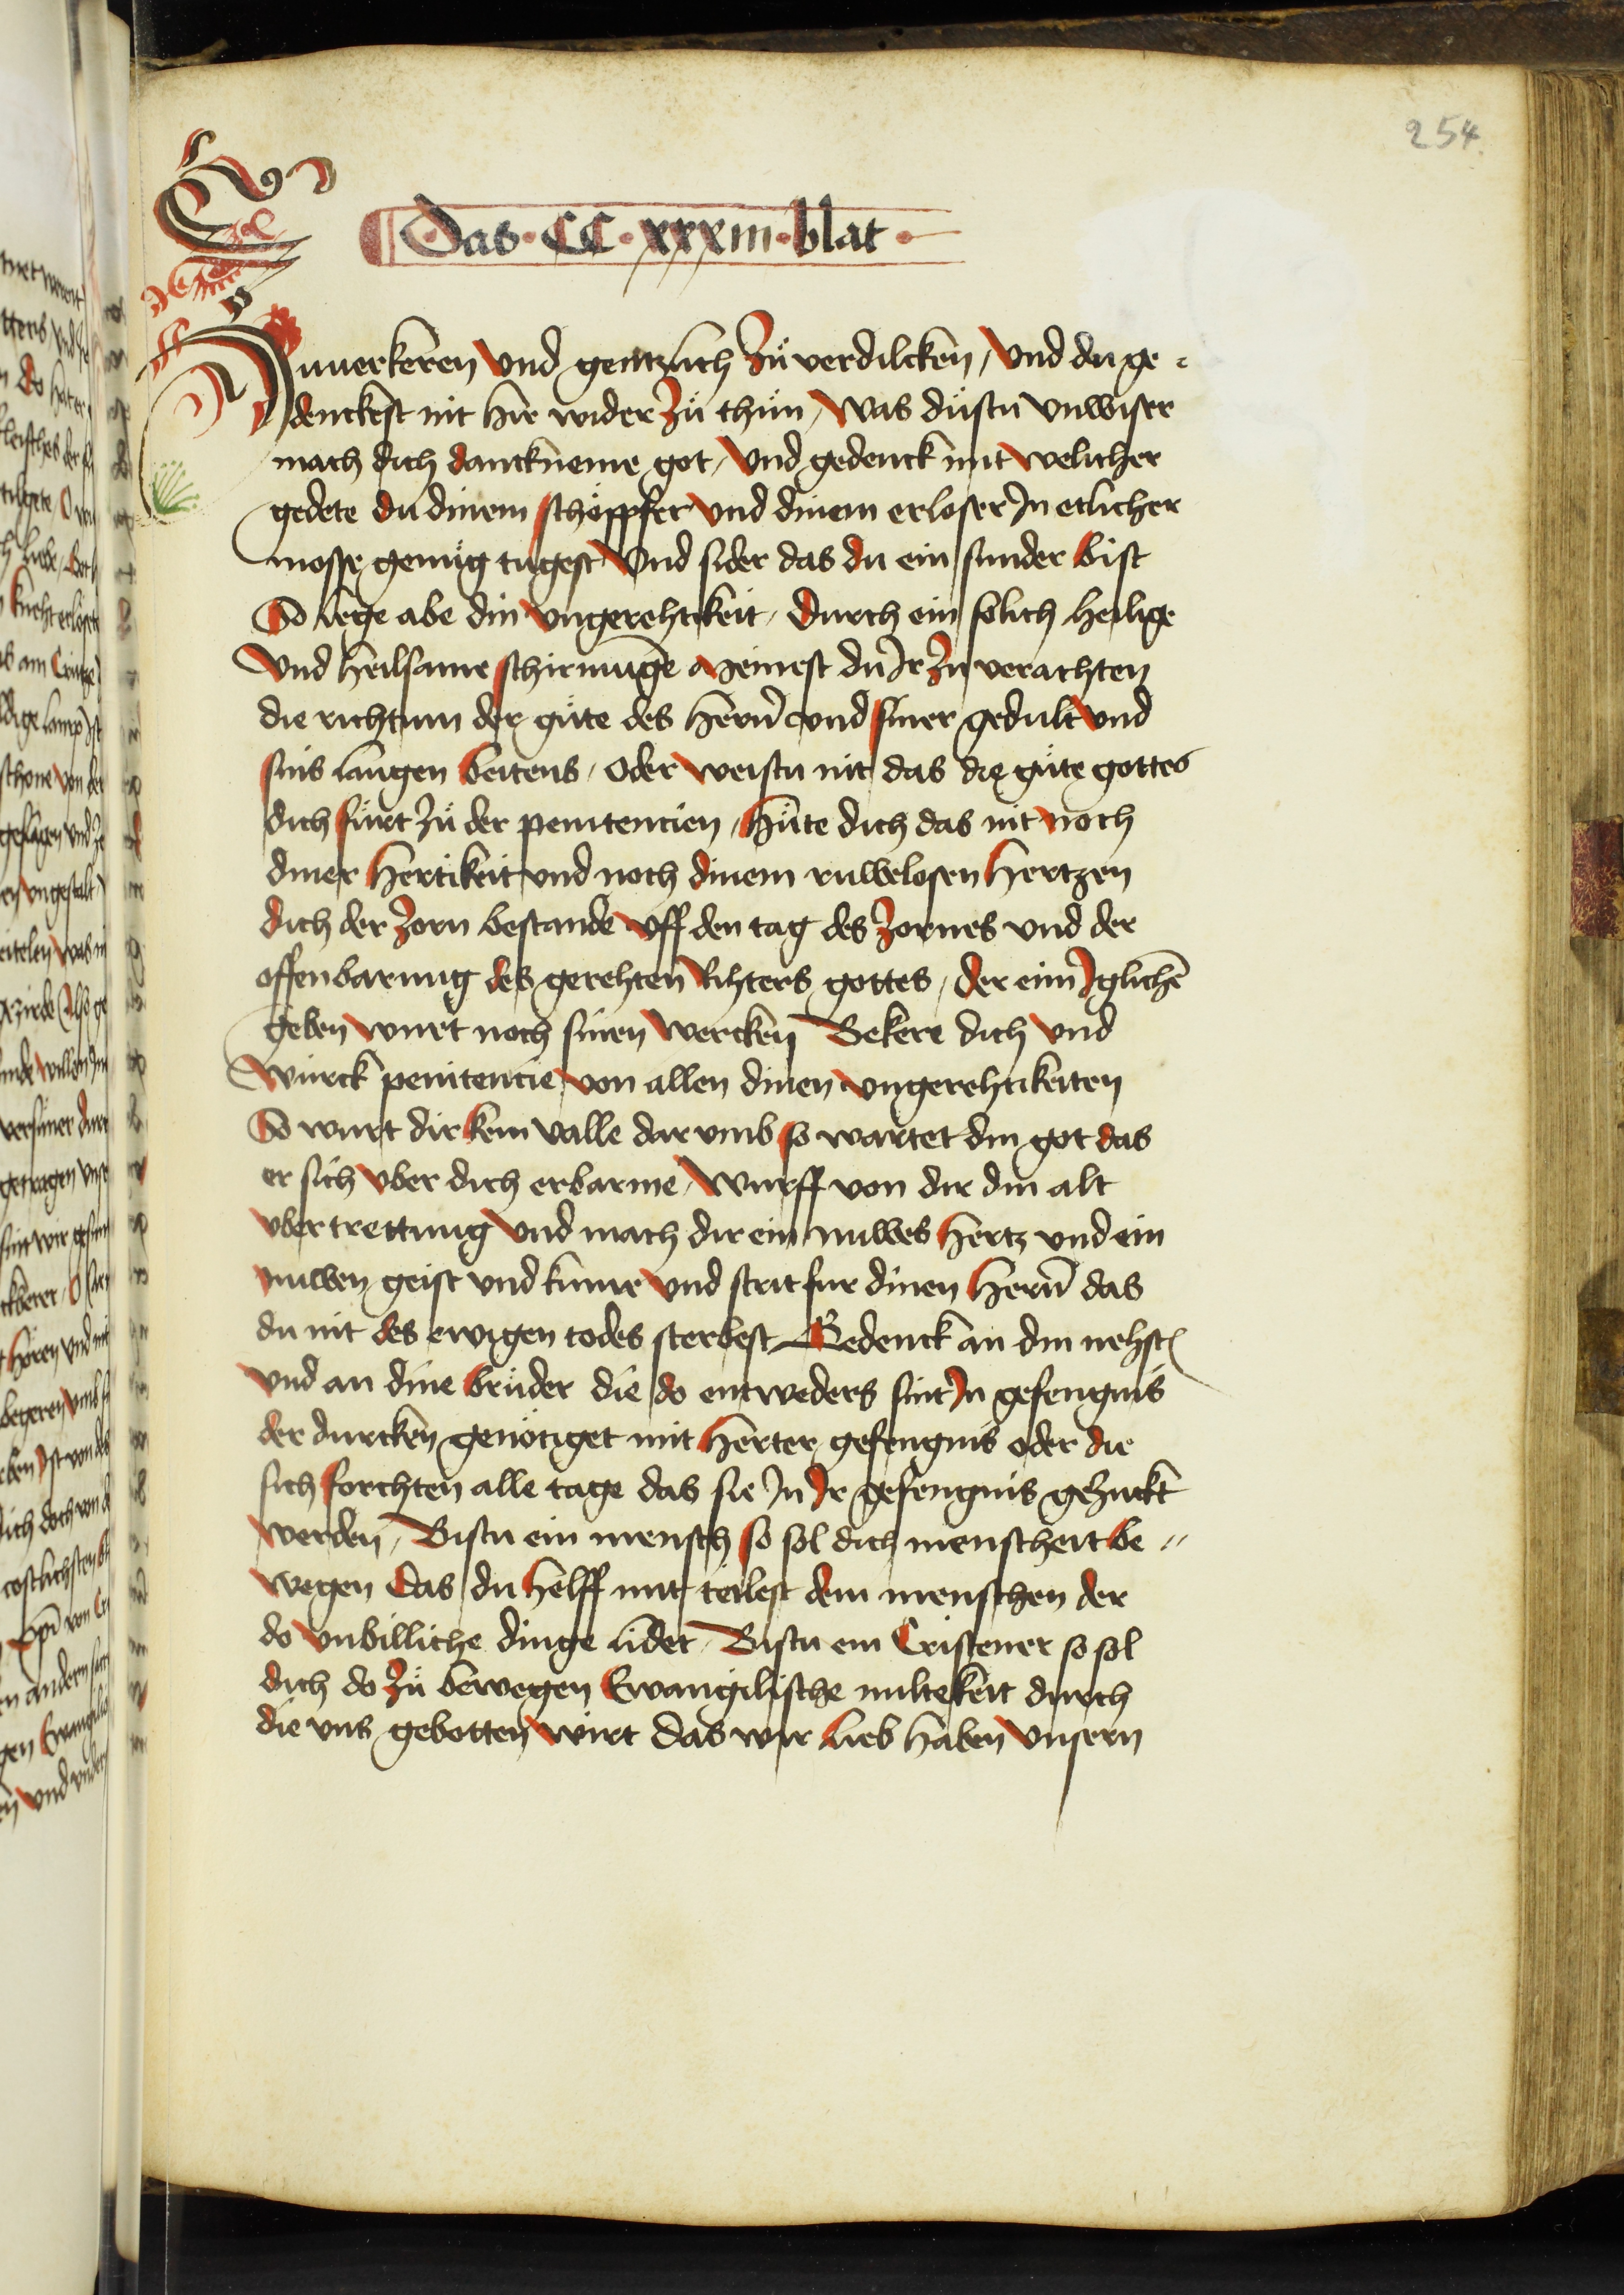 254.
Das · CC · xxxiii · blat ·
Zuuerkeren vnd gentzlich Zů verdilcken / vnd du ge =
denckest nit hie wider Zů thůn / Was důstu vnwiser
mach dich danckneme got / vnd gedenck mit welicher
gedete du dinem schöppfer vnd dinem erloser Jn etlicher
mosse genůg tugest Vnd sider das du ein sunder bist
So lege abe din vngerehtikeit / durch ein solich heilige
vnd heilsame schirmunge Meinest du Jr Zu verachten
die richtum der gůte des herñ vnd siner gedult vnd
sins langen beitens / oder weistu nit das die gůte gottes
dich fůrt Zů der penitencien / Hůte dich das nit noch
diner hertikeit vnd noch dinem ruwelosen hertzen
dich der Zorn bestande vff den tag des Zornes vnd der
offenbarung des gerehten Rihters gottes / der eim Jglichē
geben wurt noch sinen wercken Bekere dich vnd
Wurck penitencie von allen dinen vngerehtikeiten
So wurt dir kein valle dar vmb so wartet din got das
er sich vber dich erbarme / Wurff von dir din alt
vbertrettung Vnd mach dir ein nuwes hertz vnd ein
nuwen geist vnd kume vnd strit fur dinen herñ das
du nit des ewigen todes sterbest Gedenck an din nehste
vnd an dine brůder die do entweders sint Jn gefengnis
der durcken genötiget mit herter gefengnis oder die
sich forchten alle tage das sie Jn Jr gefengnis gezuckt
werden / Bistu ein mensch so sol dich menscheit be =
wegen das du helff mit teilest dem menschen der
do vnbilliche dinge lidet / Bistu ein Cristener so sol
dich do Zů bewegen Ewangelische miltekeit durch
die vns gebotten wirt das wir lieb haben vnsern